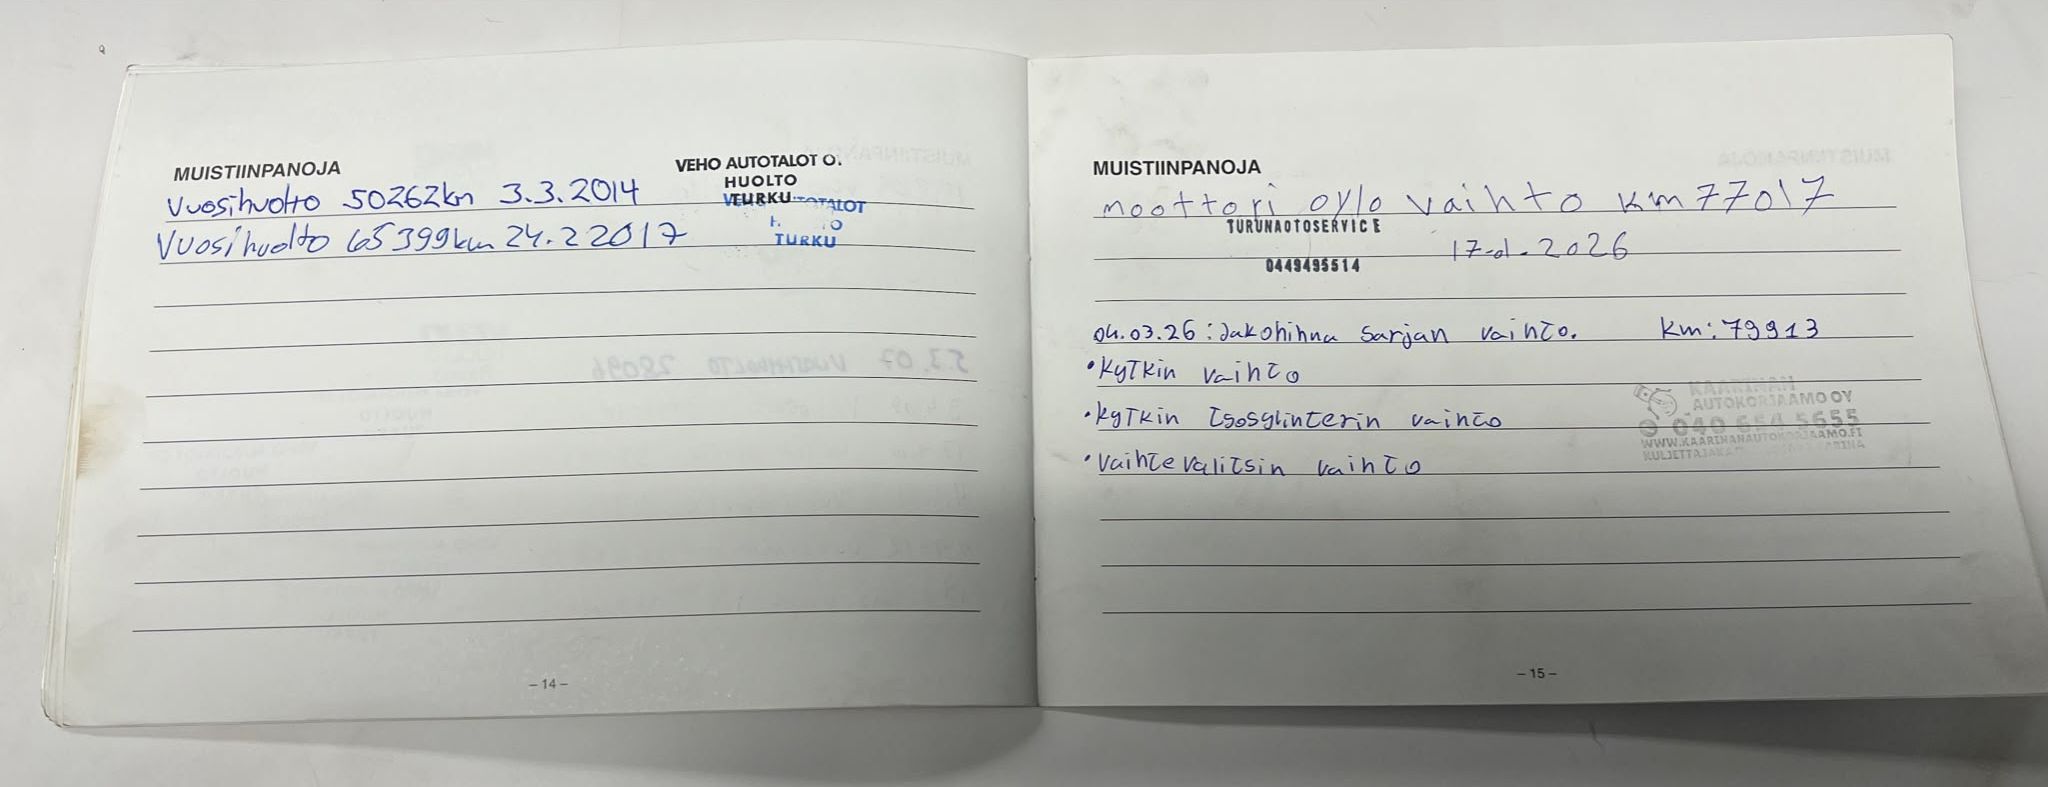 MUISTIINPANOJA
VEHO AUTOTALOT O.
HUOLTO
TURKU
Vuosihuolto 50262km 3.3.2014
Vuosihuolto 65399km 24.2 2017
TALOT
TURKU
- 14 -
MUISTIINPANOJA
moottori öylö vaihto km 77017
TURUNAOTOSERVICE
17.01.2026
0449495514
04.03.26: Jakohihna sarjan vaihto. km: 79913
• Kytkin vaihto
KAARINAN
AUTOKORJAAMO OY
• Kytkin työsylinterin vaihto
040 654 5655
WWW.KAARINANAUTOKORJAAMO.FI
• Vaihtevalitsin vaihto
- 15 -